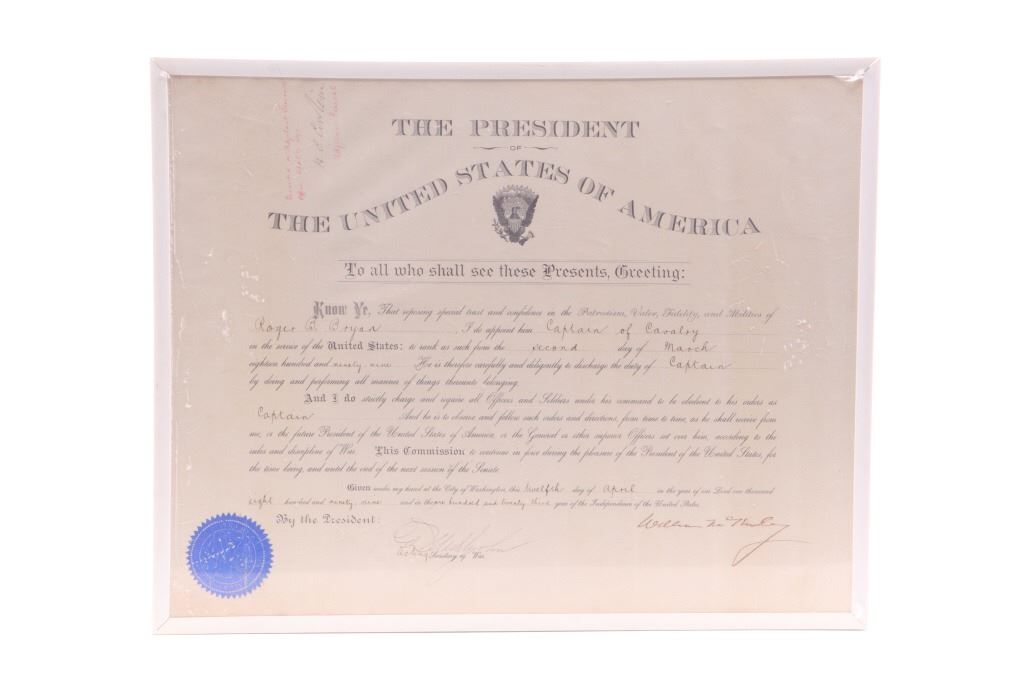 THE PRESIDENT
OF
THE UNITED STATES OF AMERICA
To all who shall see these Presents, Greeting:
Know Ye, That reposing special trust and confidence in the Patriotism, Valor, Fidelity, and Abilities of
Roger B. Bryan, I do appoint him Captain of Cavalry
in the service of the United States: to rank as such from the second day of March
eighteen hundred and ninety nine He is therefore carefully and diligently to discharge the duty of Captain
by doing and performing all manner of things thereunto belonging.
And I do strictly charge and require all Officers and Soldiers under his command to be obedient to his orders as
Captain And he is to observe and follow such orders and directions, from time to time, as he shall receive from
me, or the future President of the United States of America, or the General or other superior Officers set over him, according to the
rules and discipline of War. This Commission to continue in force during the pleasure of the President of the United States, for
the time being, and until the end of the next session of the Senate.
Given under my hand at the City of Washington, this twelfth day of April in the year of our Lord one thousand
eight hundred and ninety nine and in the one hundred and twenty third year of the Independence of the United States.
By the President:
William McKinley
Acting Secretary of War.